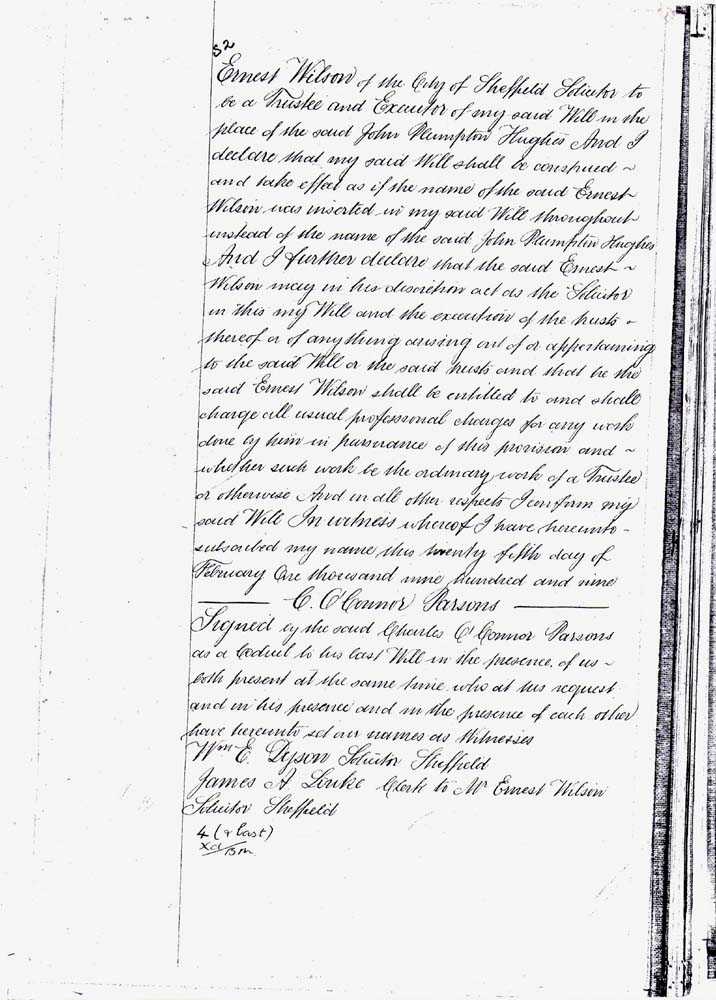 52
Ernest Wilson of the City of Sheffield Solicitor to
be a Trustee and Executor of my said Will in the
place of the said John Plumpton Hughes And I
declare that my said Will shall be construed ~
and take effect as if the name of the said Ernest
Wilson was inserted in my said Will throughout
instead of the name of the said John Plumpton Hughes
And I further declare that the said Ernest ~
Wilson may in his discretion act as the Solicitor
in this my Will and the execution of the trusts -
thereof or of anything arising out of or appertaining
to the said Will or the said trusts and that he the
said Ernest Wilson shall be entitled to and shall
charge all usual professional charges for any work
done by him in pursuance of this provision and ~
whether such work be the ordinary work of a Trustee
or otherwise And in all other respects I confirm my
said Will In witness whereof I have hereunto -
subscribed my name this twenty fifth day of
February One thousand nine hundred and nine
—— C. O'Connor Parsons ——
Signed by the said Charles O'Connor Parsons
as a Codicil to his last Will in the presence of us -
both present at the same time who at his request
and in his presence and in the presence of each other
have hereunto set our names as Witnesses
Wm E. Dyson Solicitor Sheffield
James A Clerk to Mr Ernest Wilson
Solicitor Sheffield
4 (& last)